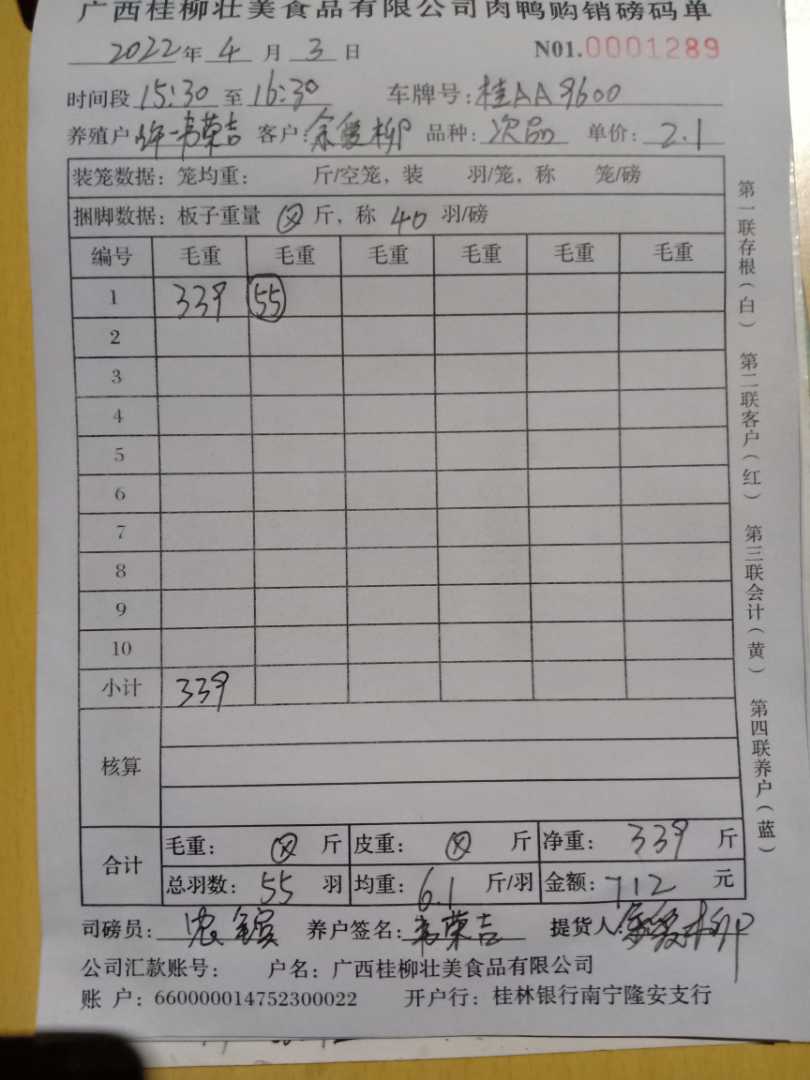 广西桂柳壮美食品有限公司肉鸭购销磅码单
2022年 4 月 3 日 N01.0001289
时间段 15:30 至 16:30 车牌号:桂AA9600
养殖户 韦荣吉 客户: 柳 品种: 次品 单价: 2.1
装笼数据: 笼均重: 斤/空笼, 装 羽/笼, 称 笼/磅
捆脚数据: 板子重量 ⊗ 斤, 称 40 羽/磅
编号 毛重 毛重 毛重 毛重 毛重 毛重
1 339 55
2
3
4
5
6
7
8
9
10
小计 339
核算
合计 毛重: ⊗ 斤 皮重: ⊗ 斤 净重: 339 斤
总羽数: 55 羽 均重: 6.1 斤/羽 金额: 712 元
司磅员: 农 养户签名: 韦荣吉 提货人: 柳
公司汇款账号: 户名: 广西桂柳壮美食品有限公司
账 户: 660000014752300022 开户行: 桂林银行南宁隆安支行
第一联存根(白) 第二联客户(红) 第三联会计(黄) 第四联养户(蓝)